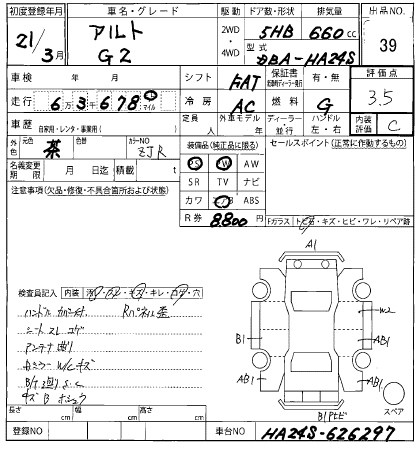 初度登録年月 車名・グレード 駆動 ドア数・形状 排気量 出品NO
21/3月 アルト G2 2WD 4WD 5HB 660cc 39
型式 DBA-HA24S
車検 年 月 シフト FAT 保証書 有・無 評価点
走行 6万3千678 マイル 冷房 AC 燃料 G 3.5
車歴 自家用・レンタ・事業用( ) 定員 外車モデル 年 ディーラー・並行 ハンドル 左・右 内装評価 C
外色 元色 茶 色替 カラーNO ZJR 装備品(純正品に限る) セールスポイント(正常に作動するもの)
名義変更期限 月 日迄 積載 t PS PW AW
注意事項(欠品・修復・不具合箇所および状態) SR TV ナビ
カワ エアB ABS
R券 8,800円 Fガラス トビ・キズ・ヒビ・ワレ・リペア跡
A1
検査員記入 内装 キレ 穴
W2
ハンドル
B1 AB1
シートスレ コゲ
アンテナ曲り
W/Cキズ AB1 AB1
S.C
B1 スペア
長さ cm 幅 cm 高さ cm
登録NO 車台NO HA24S-626297